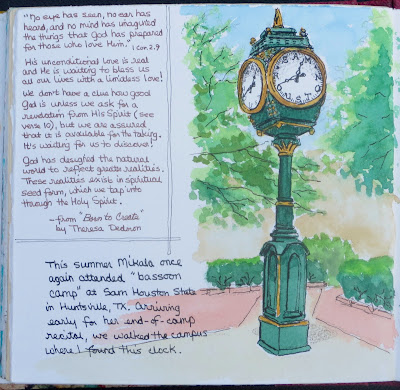 "No eye has seen, no ear has
heard, and no mind has imagined
the things that God has prepared
for those who love Him." 1 Cor. 2:9
His unconditional love is real
and He is waiting to bless us
all our lives with a limitless love!
We don't have a clue how good
God is unless we ask for a
revelation from His Spirit (see
verse 10), but we are assured
that it is available for the taking.
It's waiting for us to discover!
God has designed the natural
world to reflect greater realities.
These realities exist in spiritual
seed form, which we tap into
through the Holy Spirit.
—from "Born to Create"
by Theresa Dedmon
This summer Mikala once
again attended "bassoon
camp" at Sam Houston State
in Huntsville, TX. Arriving
early for her end-of-camp
recital, we walked the campus
where I found this clock.